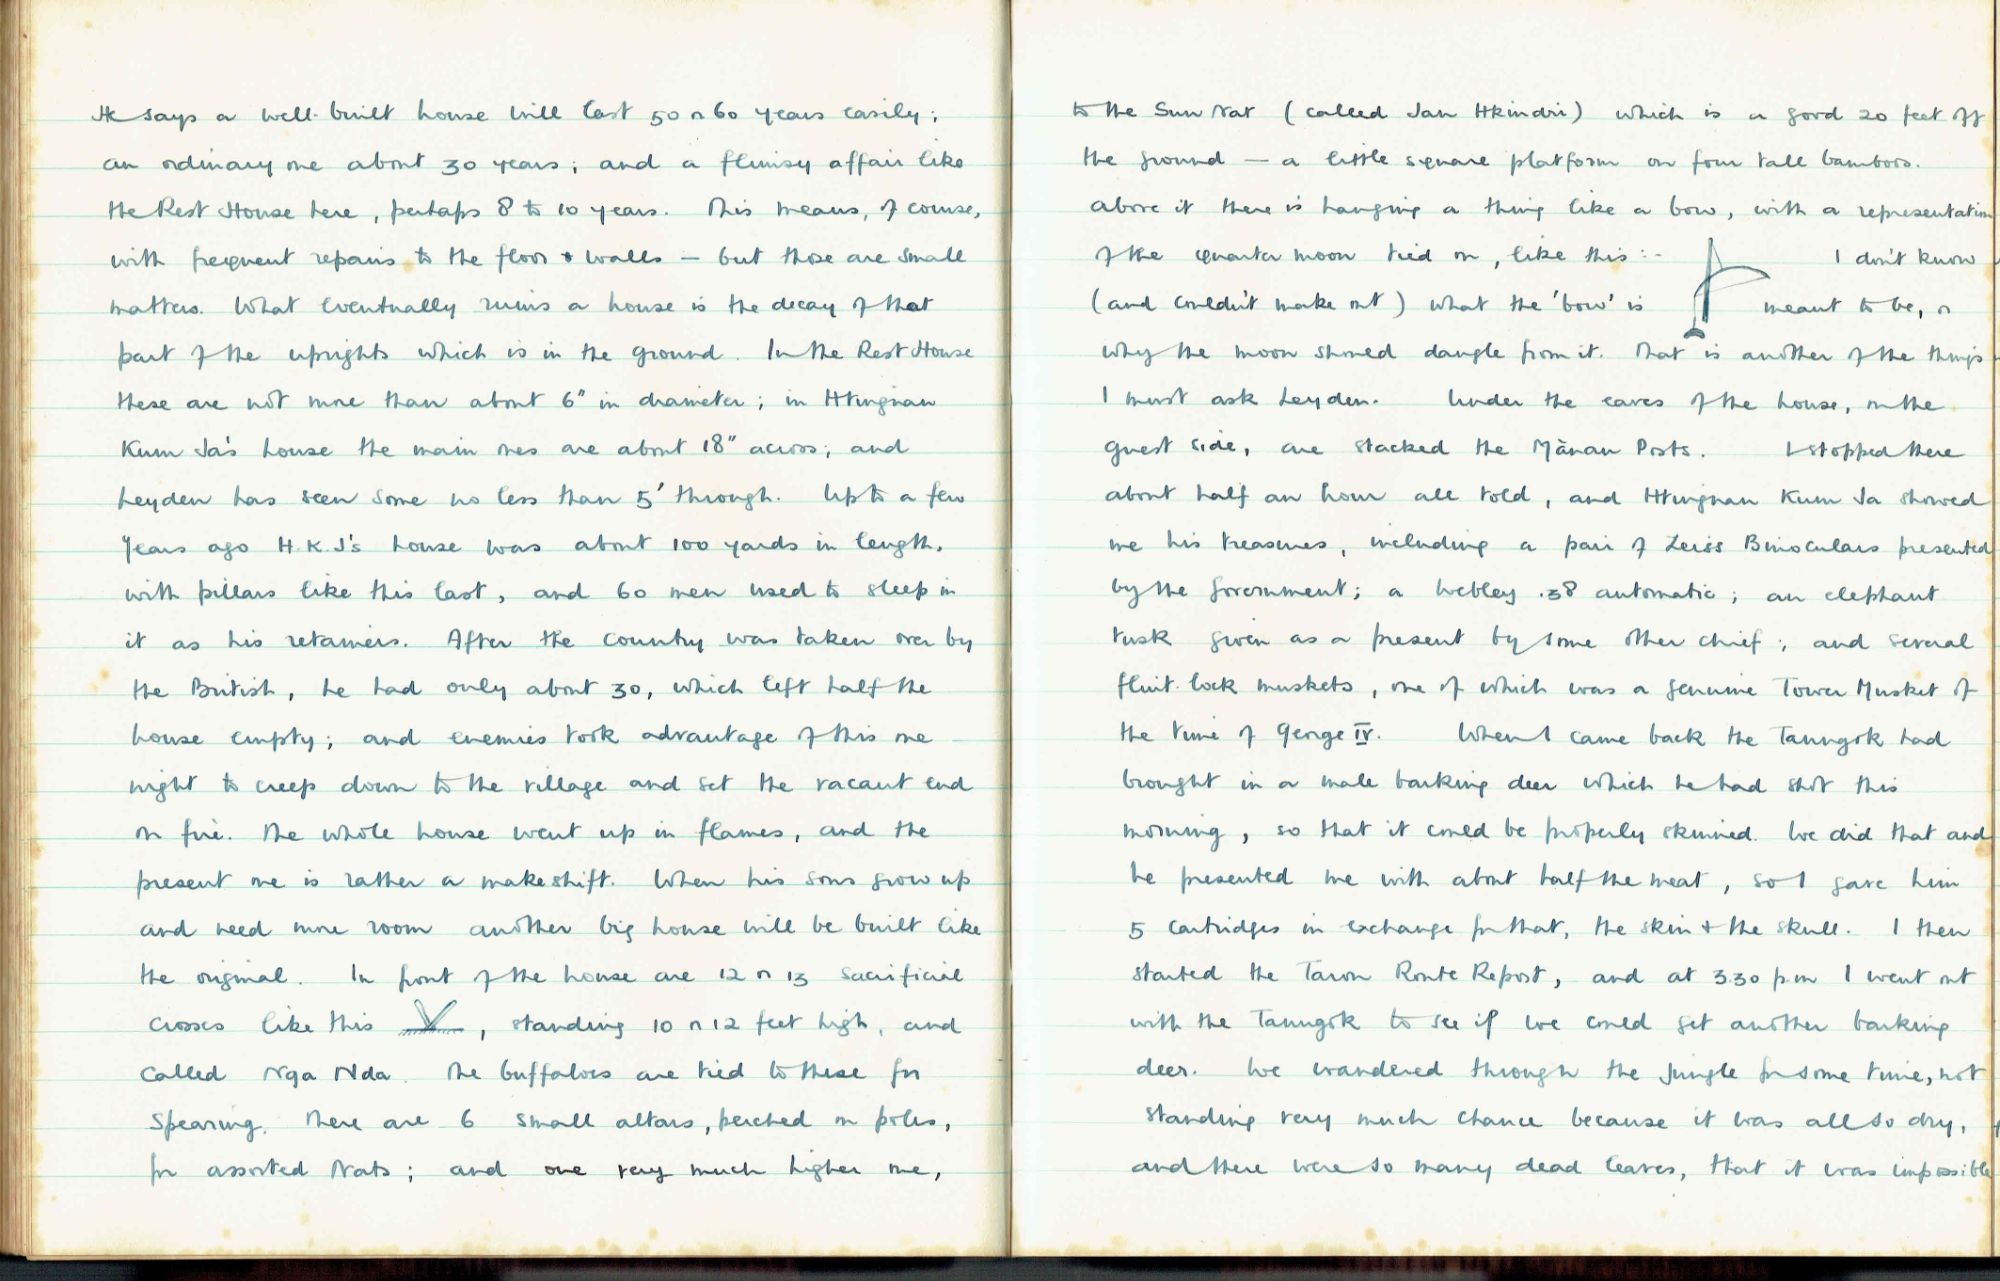 He says a well-built house will last 50 or 60 years easily;
an ordinary one about 30 years; and a flimsy affair like
the Rest House here, perhaps 8 to 10 years. This means, of course,
with frequent repairs to the floor & walls – but those are small
matters. What eventually ruins a house is the decay of that
part of the uprights which is in the ground. In the Rest House
these are not more than about 6" in diameter; in Htingnan
Kum Ja's house the main ones are about 18" across; and
Leyden has seen some no less than 5' through. Up to a few
years ago H.K.J's house was about 100 yards in length,
with pillars like this last, and 60 men used to sleep in
it as his retainers. After the country was taken over by
the British, he had only about 30, which left half the
house empty; and enemies took advantage of this one
night to creep down to the village and set the vacant end
on fire. The whole house went up in flames, and the
present one is rather a makeshift. When his sons grow up
and need more room another big house will be built like
the original. In front of the house are 12 or 13 sacrificial
crosses like this , standing 10 or 12 feet high, and
called Nga Nda. The buffaloes are tied to these for
spearing. There are 6 small altars, perched on poles,
for assorted Nats; and one very much higher one,
to the Sun Nat (called Jan Hkindri) which is a good 20 feet off
the ground – a little square platform on four tall bamboos.
above it there is hanging a thing like a bow, with a representation
of the quarter moon tied on, like this :- I don't know
(and couldn't make out) what the 'bow' is meant to be, or
why the moon should dangle from it. That is another of the things
I must ask Leyden. Under the eaves of the house, on the
guest side, are stacked the Mānau Posts. I stopped there
about half an hour all told, and Htingnan Kum Ja showed
me his treasures, including a pair of Zeiss Binoculars presented
by the Government; a Webley .38 automatic; an elephant
tusk given as a present by some other chief; and several
flint-lock muskets, one of which was a genuine Tower Musket of
the time of George IV. When I came back the Taungok had
brought in a male barking deer which he had shot this
morning, so that it could be properly skinned. We did that and
he presented me with about half the meat, so I gave him
5 cartridges in exchange for that, the skin & the skull. I then
started the Taron Route Report, and at 3.30 p.m I went out
with the Taungok to see if we could get another barking
deer. We wandered through the jungle for some time, not
standing very much chance because it was all so dry,
and there were so many dead leaves, that it was impossible